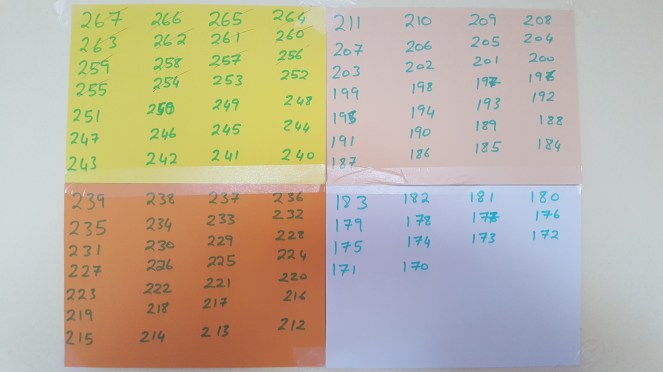 267 266 265 264
263 262 261 260
259 258 257 256
255 254 253 252
251 250 249 248
247 246 245 244
243 242 241 240
211 210 209 208
207 206 205 204
203 202 201 200
199 198 197 196
195 194 193 192
191 190 189 188
187 186 185 184
239 238 237 236
235 234 233 232
231 230 229 228
227 226 225 224
223 222 221 220
219 218 217 216
215 214 213 212
183 182 181 180
179 178 177 176
175 174 173 172
171 170